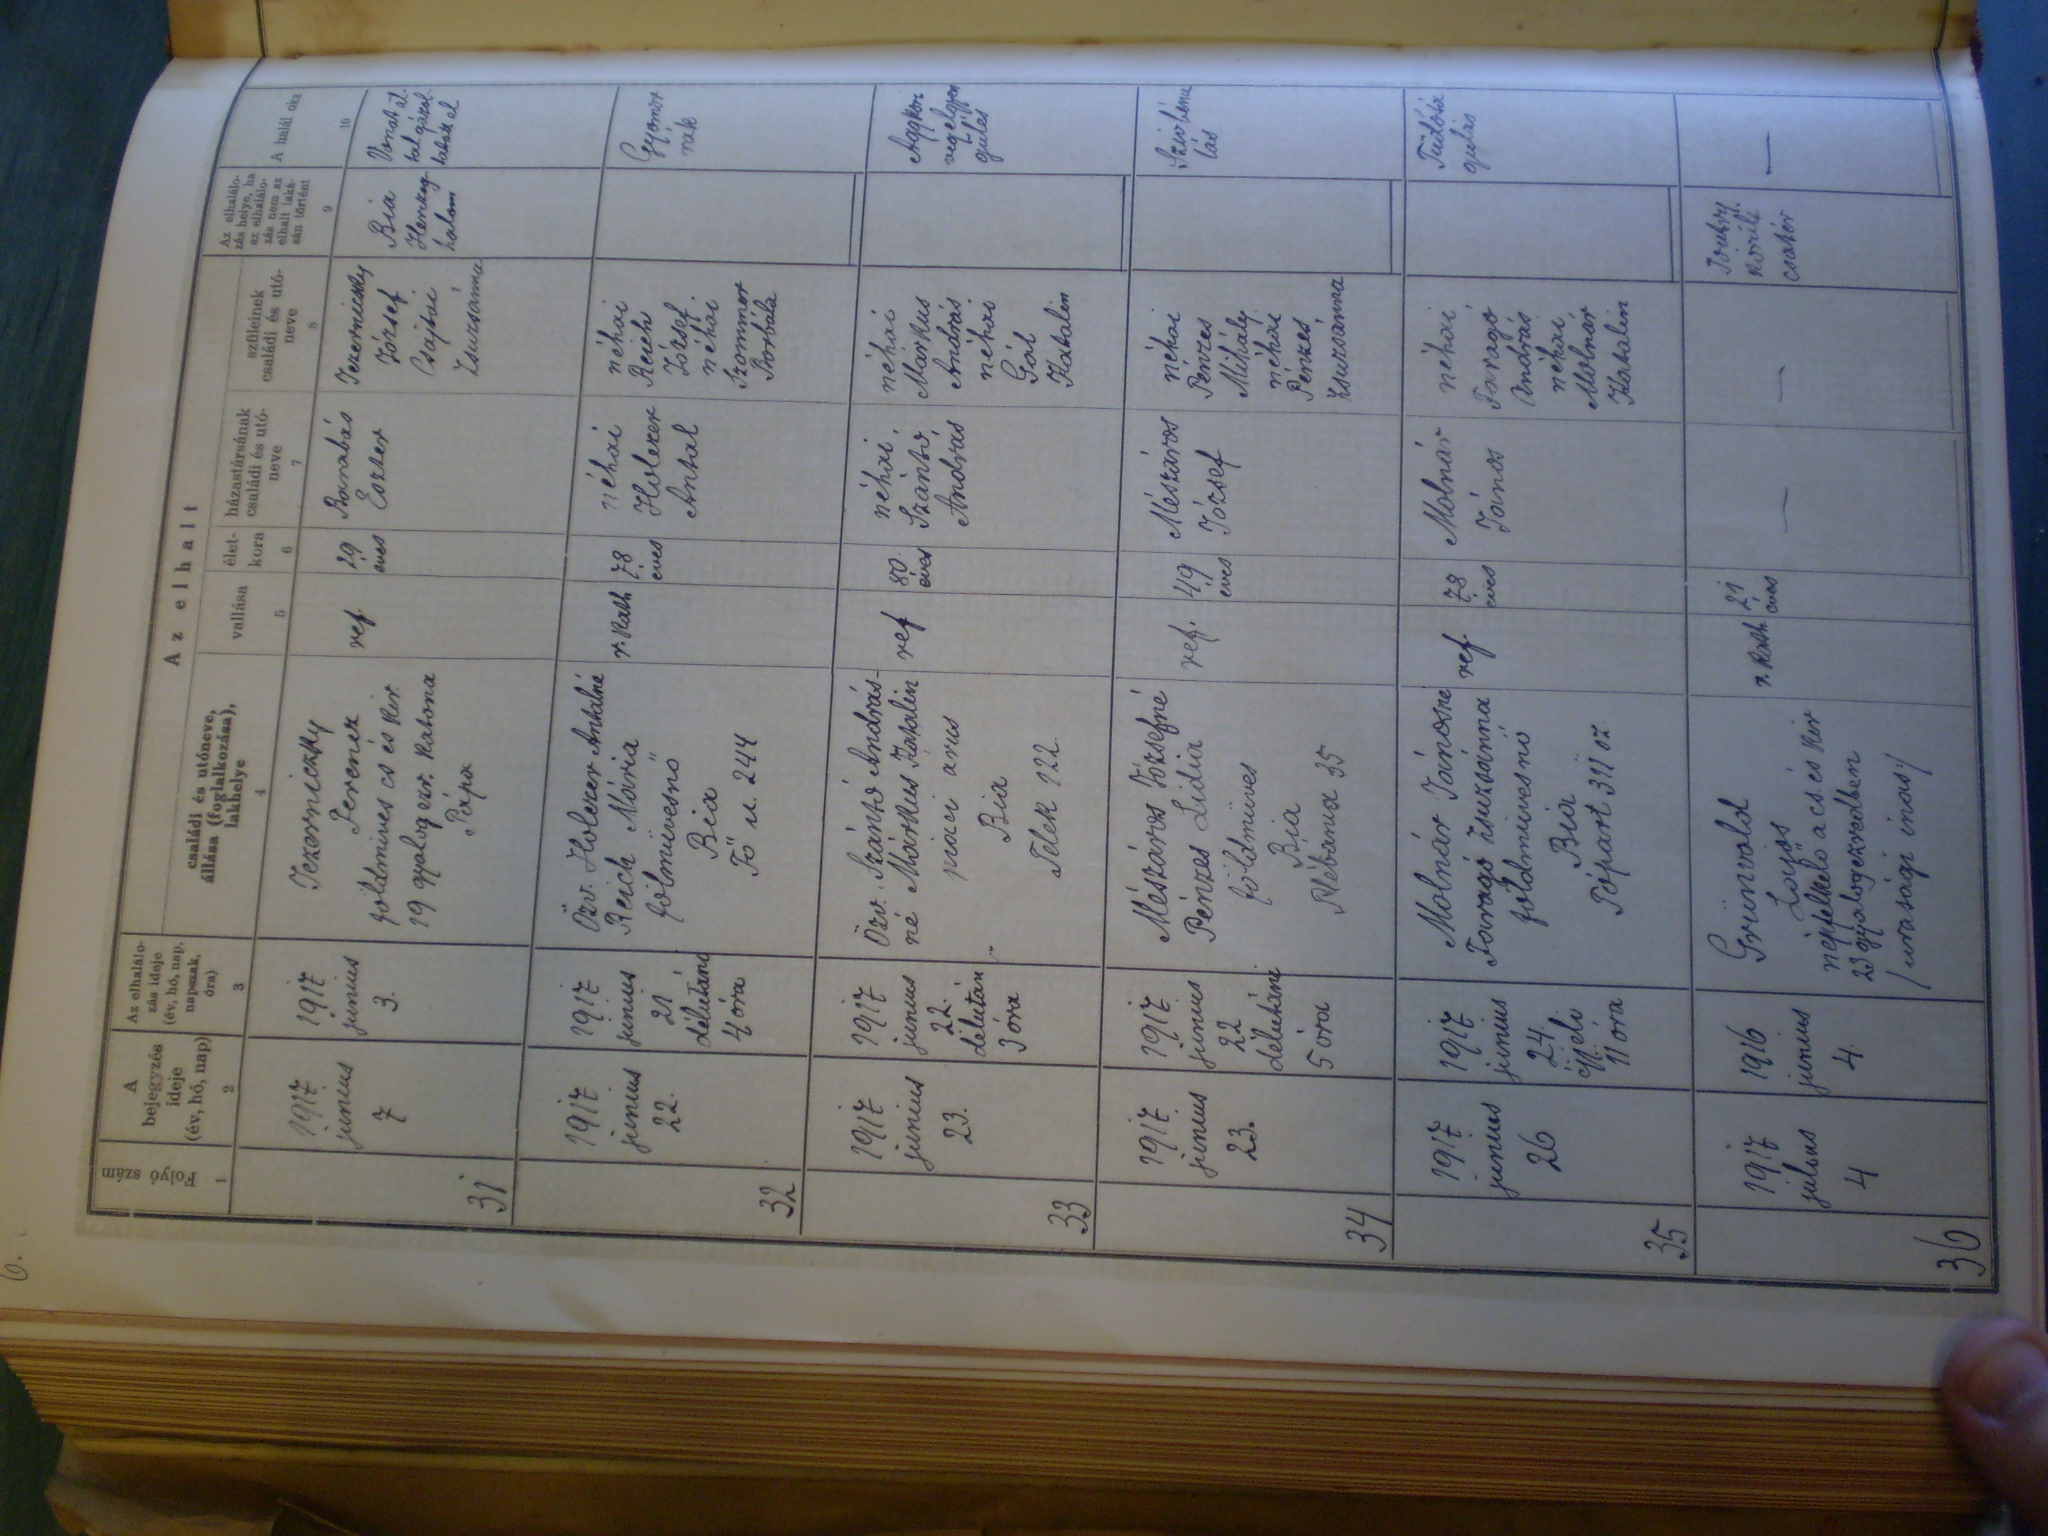 6.
Az elhalt
Folyó
szám
A
bejegyzés
ideje
(év, hó, nap)
Az elhalálo-
zás ideje
(év, hó, nap,
napszak,
óra)
családi és utóneve,
állása (foglalkozása),
lakhelye
vallása
élet-
kora
házastársának
családi és utó-
neve
szüleinek
családi és utó-
neve
Az elhalálo-
zás helye, ha
az elhalálo-
zás nem az
elhalt laká-
sán történt
A halál oka
1
2
3
4
5
6
7
8
9
10
31
1917
junius
7
1917
junius
3.
Ferencz
földmives cs és kir.
19 gyalog ezr. katona
Pápa
ref.
29
éves
Barnabás
Eszter
József
Csajtai
Zsuzsánna
Bia
Herczeg
halom
Vonat ál-
tal
32
1917
junius
22.
1917
junius
21
délutáni
4 óra
Özv. Holczer Antalné
Reich Mária
földmüvesnő
Bia
Fő u. 244
r. kath
78
éves
néhai
Holczer
Antal
néhai
Reich
József
néhai
Szommer
Borbála
Gyomor
rák
33
1917
junius
23.
1917
junius
22.
délután
3 óra
Özv. Szántó András-
né Márkus Katalin
piaci árus
Bia
Telek 122.
ref
80
éves
néhai
Szántó
András
néhai
Márkus
András
néhai
Gál
Katalin
Aggkori
végelgyen
gülés
34
1917
junius
23.
1917
junius
22
délutáni
5 óra
Mészáros Józsefné
Pénzes Lidia
földmüves
Bia
Plébánia 35
ref.
49
éves
Mészáros
József
néhai
Pénzes
Mihály
néhai
Pénzes
Zsuzsánna
Szivbénu
lás
35
1917
junius
26
1917
junius
24.
éjjeli
11 óra
Molnár Jánosné
Faragó Zsuzsánna
földmivesnő
Bia
ref.
78
éves
Molnár
János
néhai
Faragó
András
néhai
Molnár
Katalin
Tüdőtá
gulás
36
1917
julius
4
1916
junius
4.
Grünvald
Lajos
népfelkelő a cs. és kir
23 gyalogezredben
/ urasági inas /
r. kath.
21
éves
—
—
körüli
csatér
—